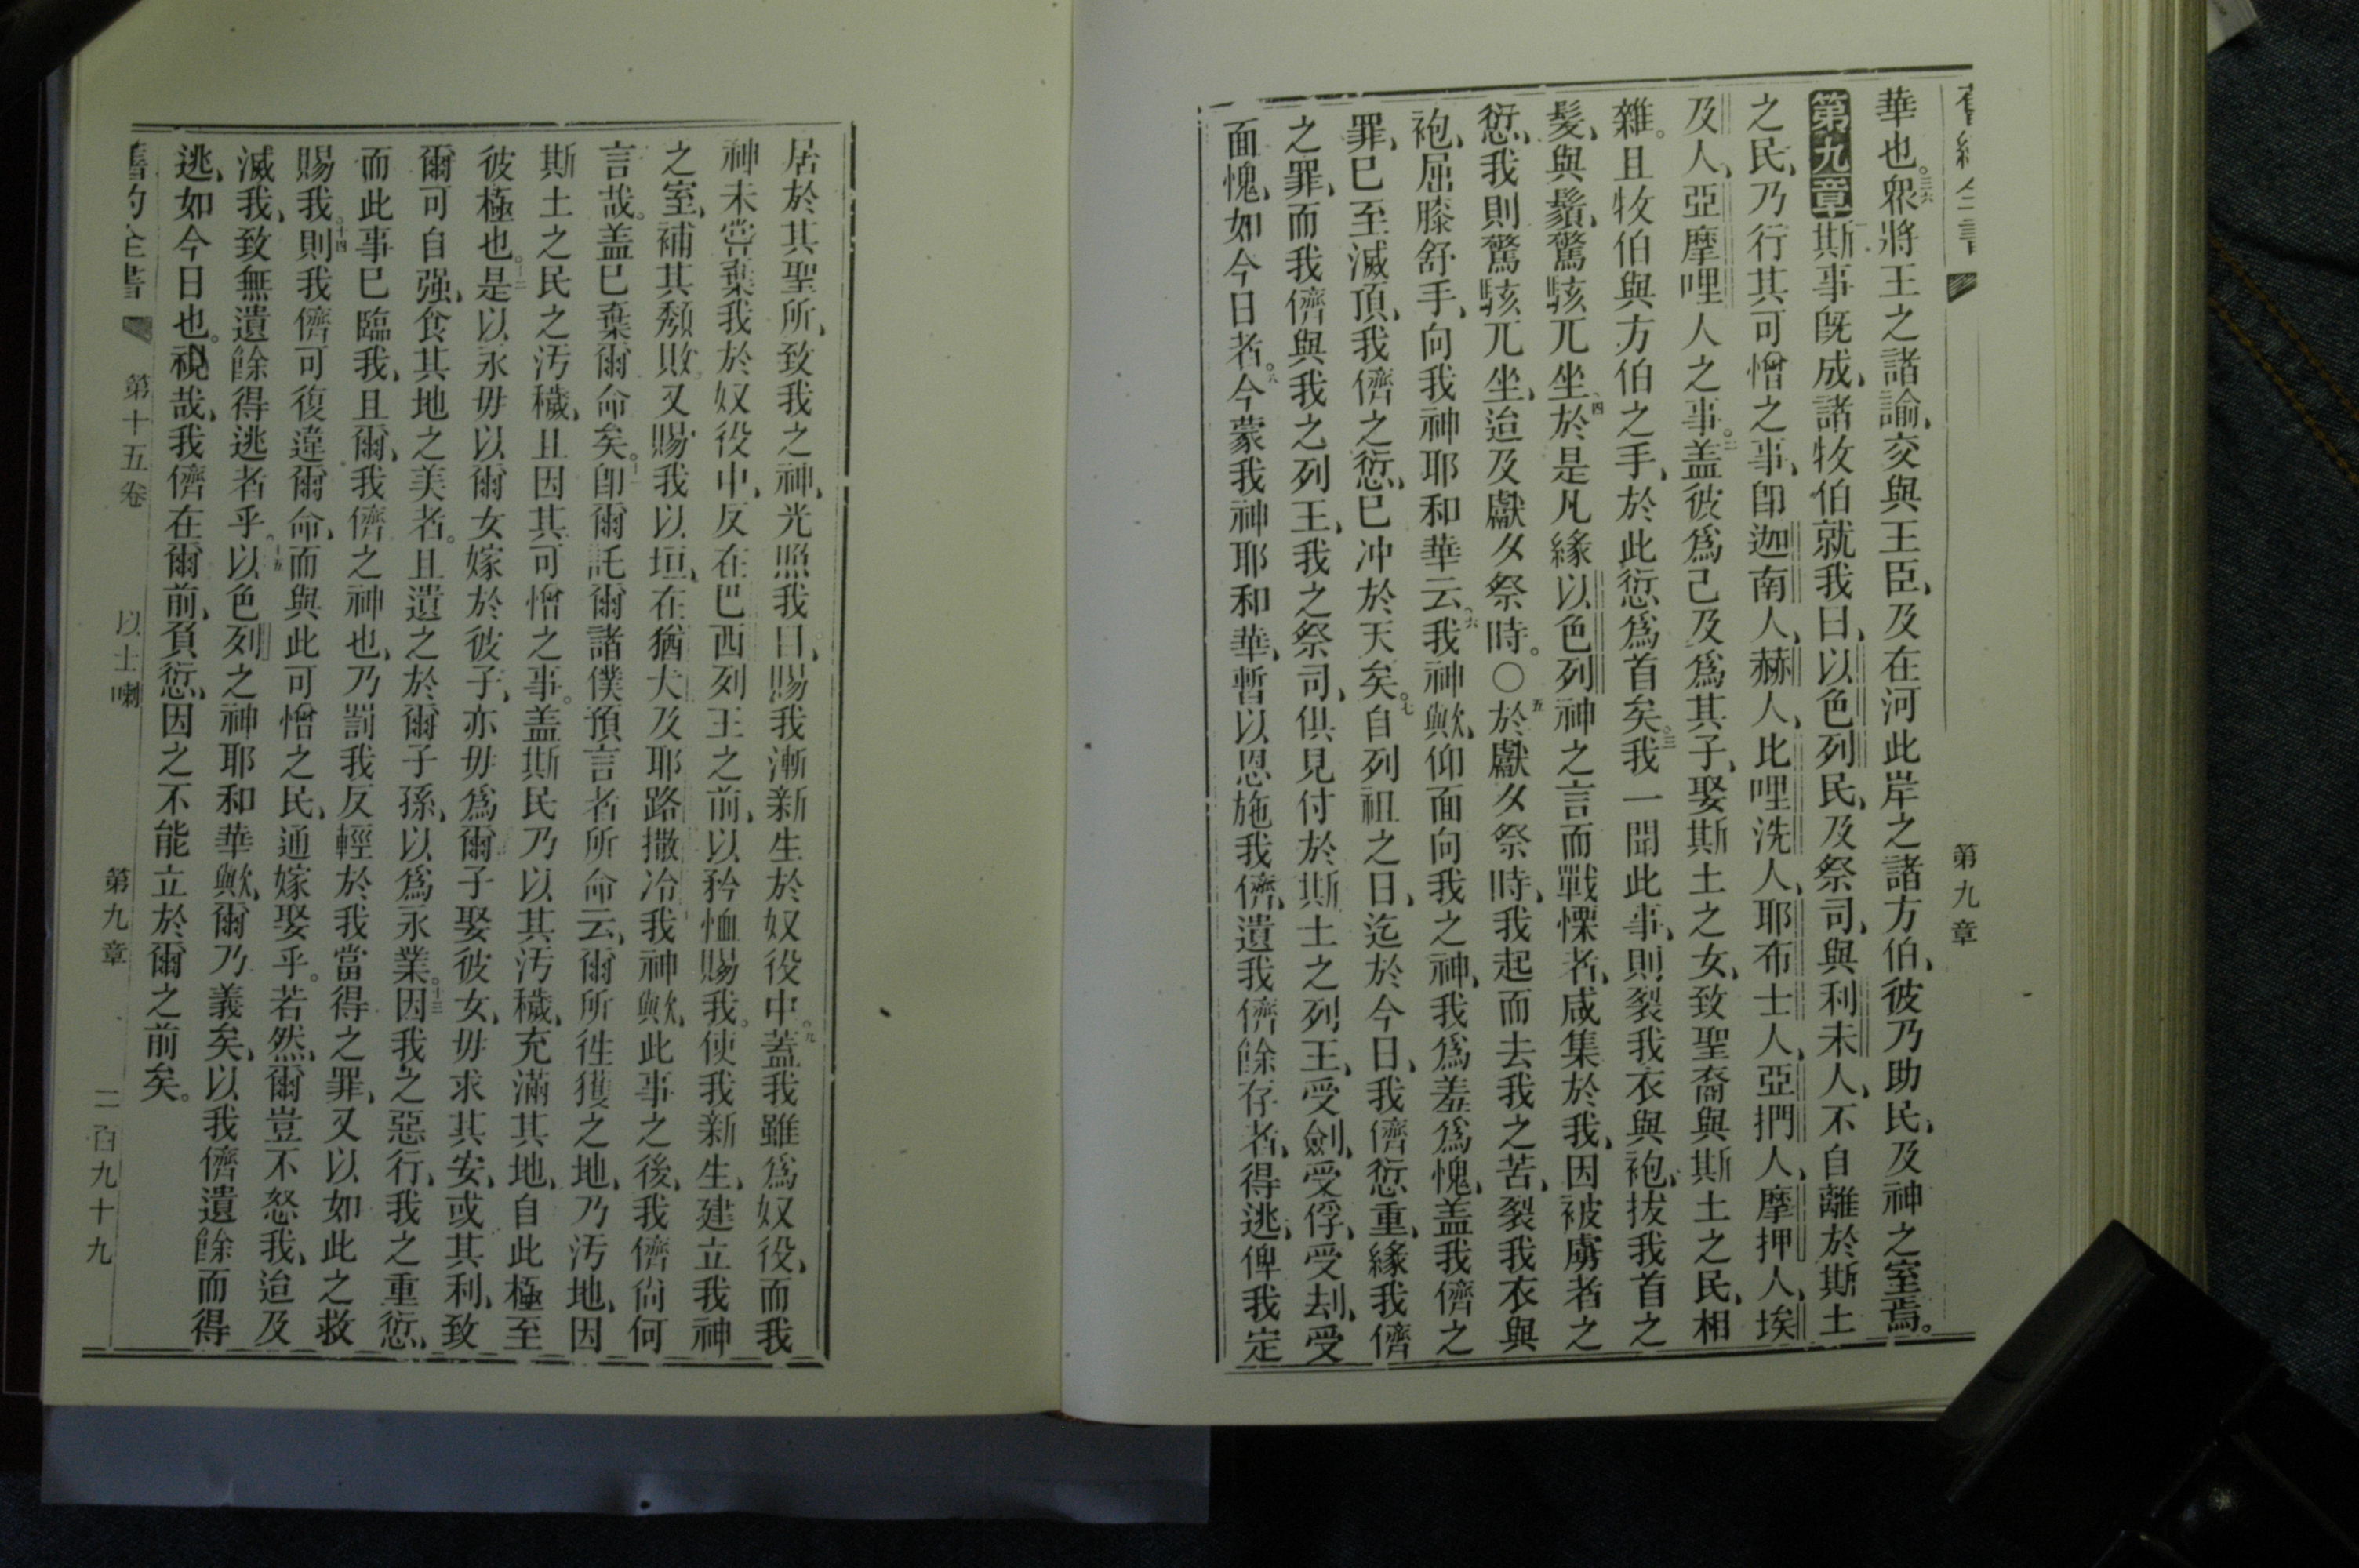 第九章
華也。三六衆將王之諸諭、交與王臣、及在河此岸之諸方伯、彼乃助民、及神之室焉。
第九章一斯事旣成、諸牧伯就我曰、以色列民、及祭司、與利未人、不自離於斯土
之民、乃行其可憎之事、卽迦南人、赫人、比哩洗人、耶布士人、亞捫人、摩押人、埃
及人、亞摩哩人之事。二盖彼爲己及爲其子、娶斯土之女、致聖裔與斯土之民、相
雜。且牧伯與方伯之手、於此愆爲首矣。三我一聞此事、則裂我衣與袍、拔我首之
髮、與鬚、驚駭兀坐、四於是凡緣以色列神之言而戰慄者、咸集於我、因被虜者之
愆、我則驚駭兀坐、迨及獻夕祭時。〇五於獻夕祭時、我起而去我之苦、裂我衣與
袍、屈膝舒手、向我神耶和華云、六我神歟、仰面向我之神、我爲羞爲愧、盖我儕之
罪、已至滅頂、我儕之愆、已冲於天矣。七自列祖之日、迄於今日、我儕愆重、緣我儕
之罪、而我儕與我之列王、我之祭司、俱見付於斯土之列王、受劍、受俘、受刦、受
面愧、如今日者。八今蒙我神耶和華、暫以恩施我儕、遺我儕餘存者、得逃、俾我定
居於其聖所、致我之神、光照我目、賜我漸新生於奴役中。九蓋我雖爲奴役、而我
神未嘗棄我於奴役中、反在巴西列王之前、以矜恤賜我。使我新生、建立我神
之室、補其頹敗、又賜我以垣、在猶大及耶路撒冷、我神歟、此事之後、我儕尙何
言哉。盖已棄爾命矣。十一卽爾託爾諸僕預言者所命云、爾所徃獲之地、乃汚地、因
斯土之民之汚穢、且因其可憎之事。盖斯民乃以其汚穢、充滿其地、自此極至
彼極也。十二是以永毋以爾女嫁於彼子、亦毋爲爾子娶彼女、毋求其安、或其利、致
爾可自强、食其地之美者。且遺之於爾子孫、以爲永業。十三因我之惡行、我之重愆、
而此事已臨我、且爾、我儕之神也、乃罰我反輕於我當得之罪、又以如此之救
賜我。十四則我儕可復違爾命、而與此可憎之民、通嫁娶乎。若然、爾豈不怒我、迨及
滅我、致無遺餘得逃者乎。十五以色列之神耶和華歟、爾乃義矣、以我儕遺餘而得
逃、如今日也。視哉、我儕在爾前、負愆、因之不能立於爾之前矣。
舊約全書 第十五卷 以士喇 第九章 二百九十九